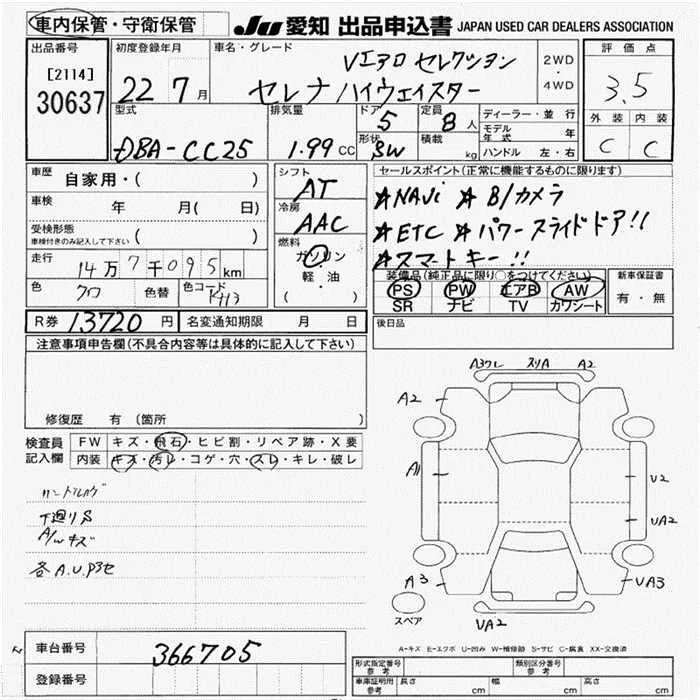 車内保管・守衛保管
JU 愛知 出品申込書 JAPAN USED CAR DEALERS ASSOCIATION
出品番号
[2114]
30637
初度登録年月
22 7 月
車名・グレード
Vエアロ セレクション
セレナ ハイウェイスター
2WD
・
4WD
評価点
3.5
外装 内装
C C
型式
DBA-CC25
排気量
1.99 CC
ドア
5
形状
SW
定員
8 人
積載
kg
ディーラー・並行
モデル年式 年
ハンドル 左・右
車歴
自家用・( )
車検
年 月( 日)
受検形態
車検付きのみ記入して下さい ( )
走行
14万7千095km
色
クロ
色替
色コード
KH3
シフト
AT
冷房
AAC
燃料
ガソリン
軽・油
( )
セールスポイント(正常に機能するものに限ります)
☆NAVi ☆B/カメラ
☆ETC ☆パワースライドドア!!
☆スマートキー!!
装備品(純正品に限り○をつけてください)
PS PW エアB AW
SR ナビ TV カワシート
新車保証書
有・無
R券 13720 円
名変通知期限 月 日
後日品
注意事項申告欄(不具合内容等は具体的に記入して下さい)
修復歴 有 (箇所 )
検査員
記入欄
FW キズ・飛石・ヒビ割・リペア跡・X要
内装 キズ・汚レ・コゲ・穴・スレ・キレ・破レ
下廻りS
A/Wキズ
各A.U.P3セ
A3ワレ スリA A2
A2
A1
U2
UA2
A3
UA3
UA2
スペア
A-キズ E-エクボ U-凹み W-補修跡 S-サビ C-腐食 XX-交換済
車台番号 366705
登録番号
形式指定番号
参考
類別区分番号
参考
車庫証明用
参考
長さ cm
幅 cm
高さ cm